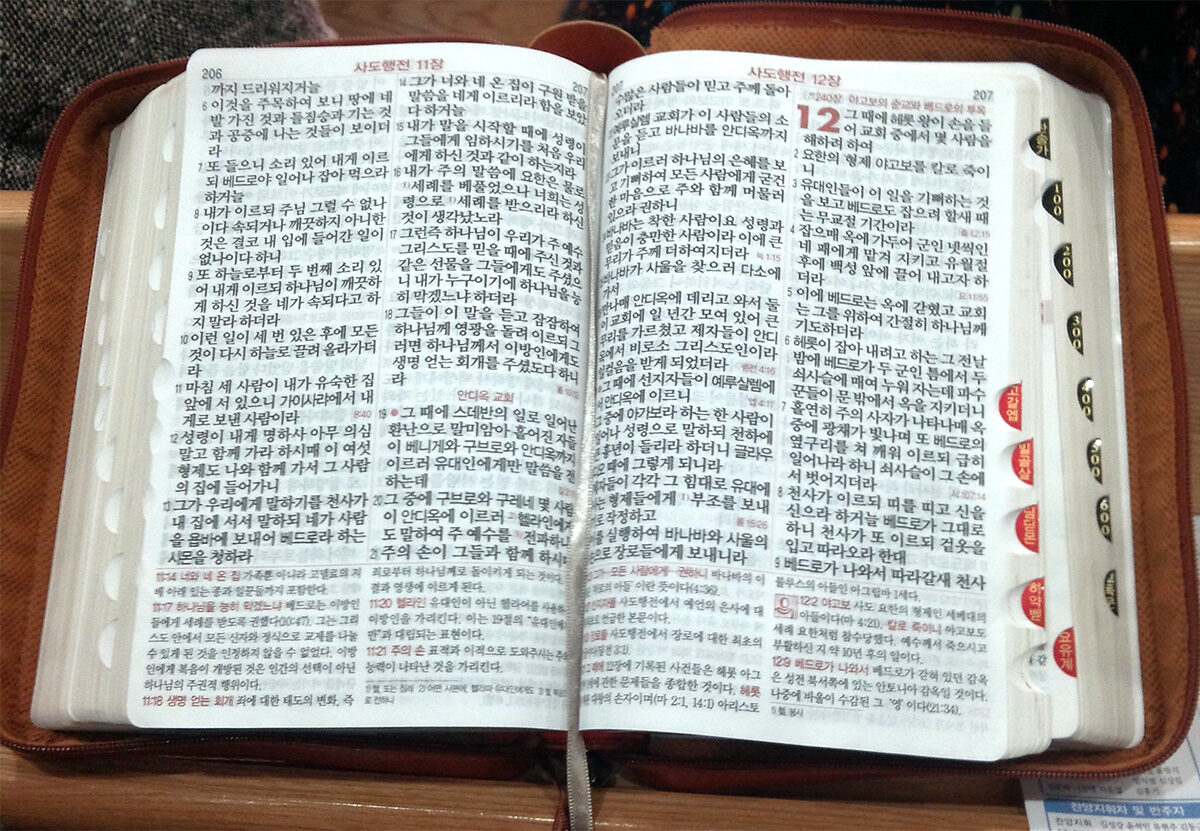 206
사도행전 11장
까지 드리워지거늘
6 이것을 주목하여 보니 땅에 네
발 가진 것과 들짐승과 기는 것
과 공중에 나는 것들이 보이더
라
7 또 들으니 소리 있어 내게 이르
되 베드로야 일어나 잡아 먹으라
하거늘
8 내가 이르되 주님 그럴 수 없나
이다 속되거나 깨끗하지 아니한
것은 결코 내 입에 들어간 일이
없나이다 하니
9 또 하늘로부터 두 번째 소리 있
어 내게 이르되 하나님이 깨끗하
게 하신 것을 네가 속되다고 하
지 말라 하더라
10 이런 일이 세 번 있은 후에 모든
것이 다시 하늘로 끌려 올라가더
라
11 마침 세 사람이 내가 유숙한 집
앞에 서 있으니 가이사랴에서 내
게로 보낸 사람이라
8:40
12 성령이 내게 명하사 아무 의심
말고 함께 가라 하시매 이 여섯
형제도 나와 함께 가서 그 사람
의 집에 들어가니
13 그가 우리에게 말하기를 천사가
내 집에 서서 말하되 네가 사람
을 욥바에 보내어 베드로라 하는
시몬을 청하라
14 그가 너와 네 온 집이 구원 받을
말씀을 네게 이르리라 함을 보았
다 하거늘
15 내가 말을 시작할 때에 성령이
그들에게 임하시기를 처음 우리
에게 하신 것과 같이 하는지라
16 내가 주의 말씀에 요한은 물로
1)세례를 베풀었으나 너희는 성
령으로 1)세례를 받으리라 하신
것이 생각났노라
17 그런즉 하나님이 우리가 주 예수
그리스도를 믿을 때에 주신 것과
같은 선물을 그들에게도 주셨으
니 내가 누구이기에 하나님을 능
히 막겠느냐 하더라
18 그들이 이 말을 듣고 잠잠하여
하나님께 영광을 돌려 이르되 그
러면 하나님께서 이방인에게도
생명 얻는 회개를 주셨도다 하니
라
안디옥 교회
19 그 때에 스데반의 일로 일어난
환난으로 말미암아 흩어진 자들
이 베니게와 구브로와 안디옥까지
이르러 유대인에게만 말씀을 전
하는데
20 그 중에 구브로와 구레네 몇 사람
이 안디옥에 이르러 헬라인에게
도 말하여 주 예수를 전파하니
21 주의 손이 그들과 함께 하시
11:14 너와 네 온 집 가족뿐 아니라 고넬료의 지
배 아래 있는 종과 일꾼들까지 포함한다.
11:17 하나님을 능히 막겠느냐 베드로는 이방인
들에게 세례를 받도록 권했다(10:47). 그는 그리
스도 안에서 모든 신자와 정식으로 교제를 나눌
수 있게 된 것을 인정하지 않을 수 없었다. 이방
인에게 복음이 개방된 것은 인간의 선택이 아닌
하나님의 주권적 행위이다.
11:18 생명 얻는 회개 죄에 대한 태도의 변화, 즉
죄로부터 하나님께로 돌이키게 되는 것이다.
결과 영생에 이르게 된다.
11:20 헬라인 유대인이 아닌 헬라어를 사용하는
이방인을 가리킨다. 이는 19절의 "유대인에게
만"과 대립되는 표현이다.
11:21 주의 손 표적과 이적으로 도와주시는 주의
능력이 나타난 것을 가리킨다.
사도행전 12장
207
수많은 사람들이 믿고 주께 돌아
오더라
예루살렘 교회가 이 사람들의 소
문을 듣고 바나바를 안디옥까지
보내니
그가 이르러 하나님의 은혜를 보
고 기뻐하여 모든 사람에게 굳건
한 마음으로 주와 함께 머물러
있으라 권하니
바나바는 착한 사람이요 성령과
믿음이 충만한 사람이라 이에 큰
무리가 주께 더하여지더라
바나바가 사울을 찾으러 다소에
가서
만나매 안디옥에 데리고 와서 둘
이 교회에 일 년간 모여 있어 큰
무리를 가르쳤고 제자들이 안디
옥에서 비로소 그리스도인이라
일컬음을 받게 되었더라
그 때에 선지자들이 예루살렘에
서 안디옥에 이르니
그 중에 아가보라 하는 한 사람이
일어나 성령으로 말하되 천하에
큰 흉년이 들리라 하더니 글라우
디오 때에 그렇게 되니라
제자들이 각각 그 힘대로 유대에
사는 형제들에게 1)부조를 보내
기로 작정하고
이를 실행하여 바나바와 사울의
손으로 장로들에게 보내니라
240장 야고보의 순교와 베드로의 투옥
12 그 때에 헤롯 왕이 손을 들
어 교회 중에서 몇 사람을
해하려 하여
2 요한의 형제 야고보를 칼로 죽이
니
3 유대인들이 이 일을 기뻐하는 것
을 보고 베드로도 잡으려 할새 때
는 무교절 기간이라
출 12:15
4 잡으매 옥에 가두어 군인 넷씩인
네 패에게 맡겨 지키고 유월절
후에 백성 앞에 끌어 내고자 하
더라
요 11:55
5 이에 베드로는 옥에 갇혔고 교회
는 그를 위하여 간절히 하나님께
기도하더라
6 헤롯이 잡아 내려고 하는 그 전날
밤에 베드로가 두 군인 틈에서 두
쇠사슬에 매여 누워 자는데 파수
꾼들이 문 밖에서 옥을 지키더니
7 홀연히 주의 사자가 나타나매 옥
중에 광채가 빛나며 또 베드로의
옆구리를 쳐 깨워 이르되 급히
일어나라 하니 쇠사슬이 그 손에
서 벗어지더라
시 107:14
8 천사가 이르되 띠를 띠고 신을
신으라 하거늘 베드로가 그대로
하니 천사가 또 이르되 겉옷을
입고 따라오라 한대
9 베드로가 나와서 따라갈새 천사
모든 사람에게 권하니 바나바의 이
름이란 뜻이다(4:36).
사도행전에서 예언의 은사에 대
언급한 본문이다.
사도행전에서 장로에 대한 최초의
12장에 기록된 사건들은 헤롯 아그
관한 문제들을 종합한 것이다. 헤롯
대왕의 손자이며(마 2:1, 14:1) 아리스토
불루스의 아들인 아그립바 1세다.
12:2 야고보 사도 요한의 형제인 세베대의
아들이다(마 4:21). 칼로 죽이니 야고보도
세례 요한처럼 참수당했다. 예수께서 죽으시고
부활하신 지 약 10년 후의 일이다.
12:9 베드로가 나와서 베드로가 갇혀 있던 감옥
은 성전 북서쪽에 있는 안토니아 감옥일 것이다.
나중에 바울이 수감된 그 '영' 이다(21:34).
1) 헬, 봉사
100
200
300
400
500
600
고갈엡
빌골살
히약벧
요유계
찬양지휘자 및 반주자
찬양지휘